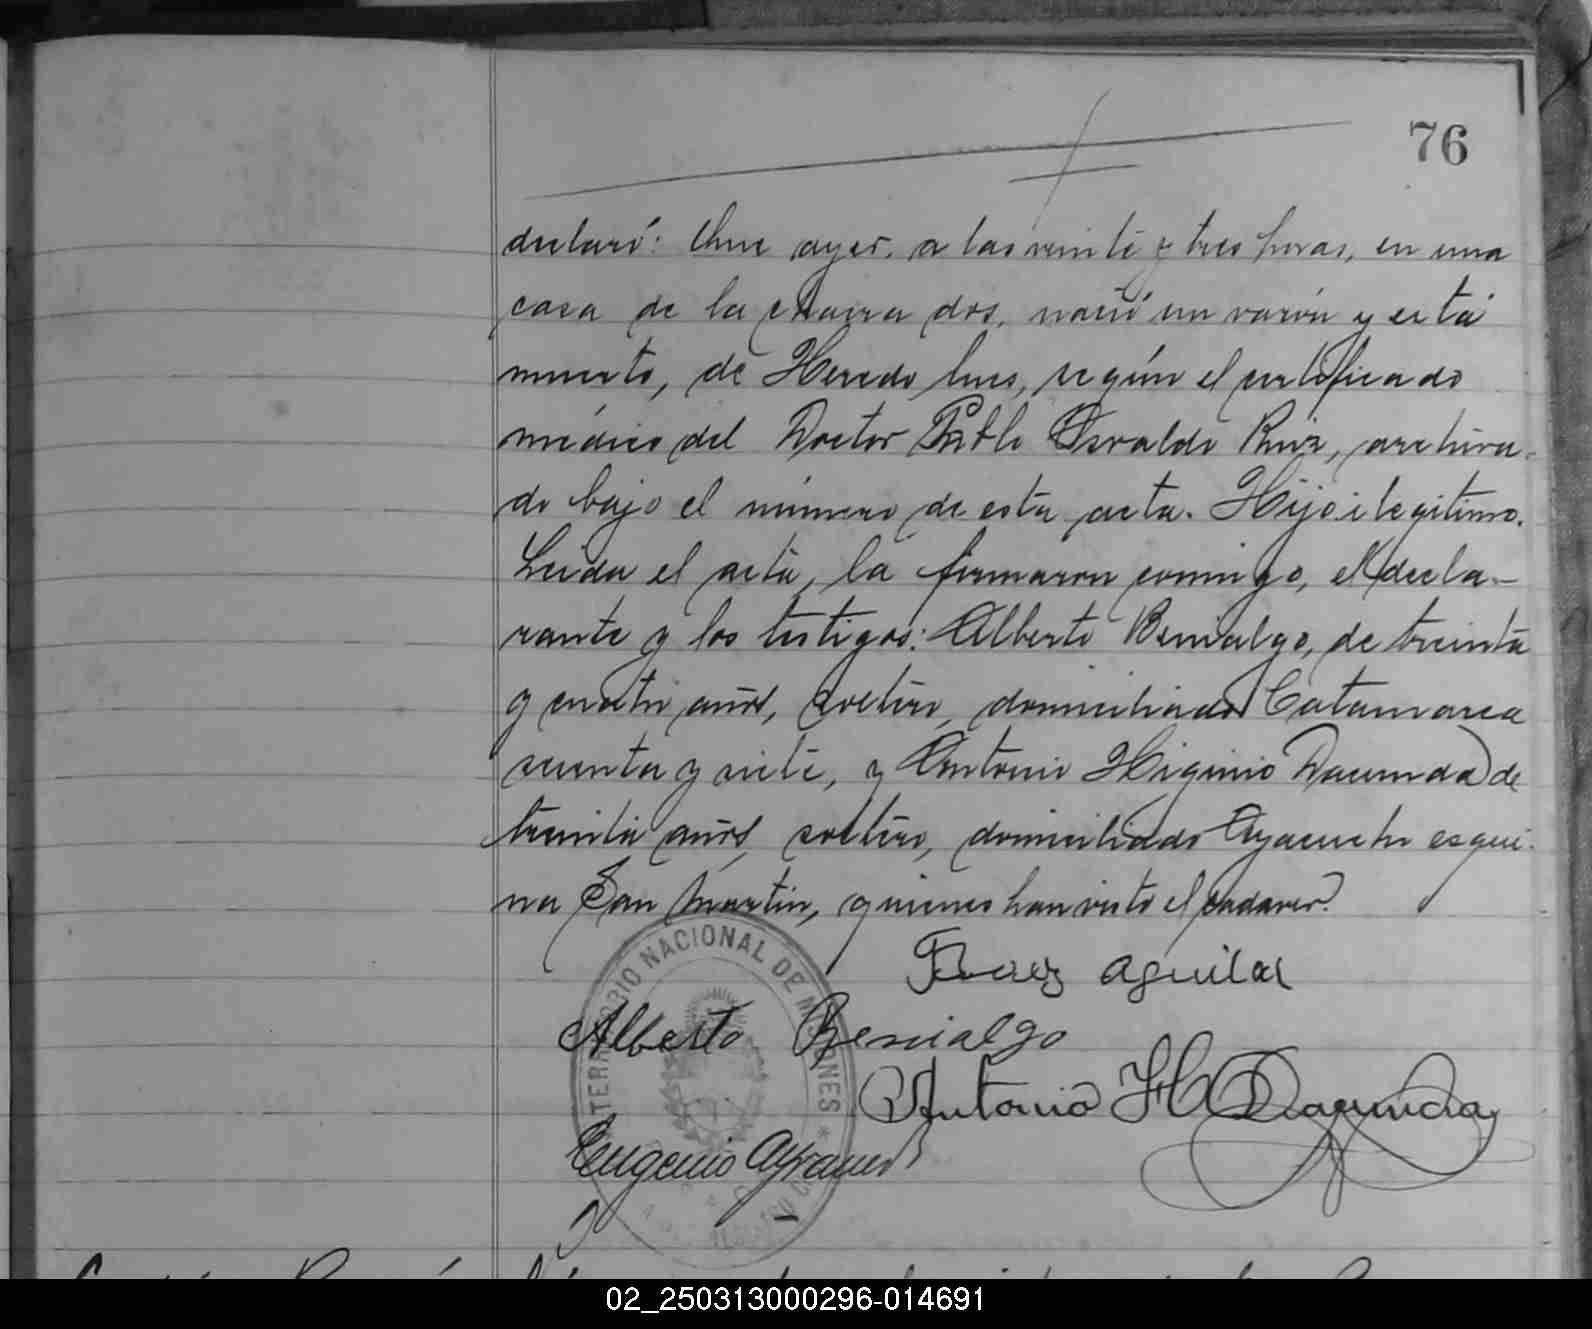 76
declaró: Que ayer, a las veinte y tres horas, en una
casa de la chacra dos, nació un varón y está
muerto, de Heredo lues, según el certificado
médico del Doctor Pablo Osvaldo Ruiz, archiva-
do bajo el número de esta acta. Hijo ilegitimo.
Leida el acta, la firmaron conmigo, el decla-
rante y los testigos: Alberto Benialgo, de treinta
y cuatro años, soltero, domiciliado Catamarca
y siete, y Antonio Higinio Dacunda de
treinta años, soltero, domiciliado Ayacucho esqui-
na San Martin, quienes han visto el cadaver.
Aguilar
Alberto Benialgo
Antonio H Dacunda
Eugenio
TERRITORIO NACIONAL DE MISIONES
02_250313000296-014691